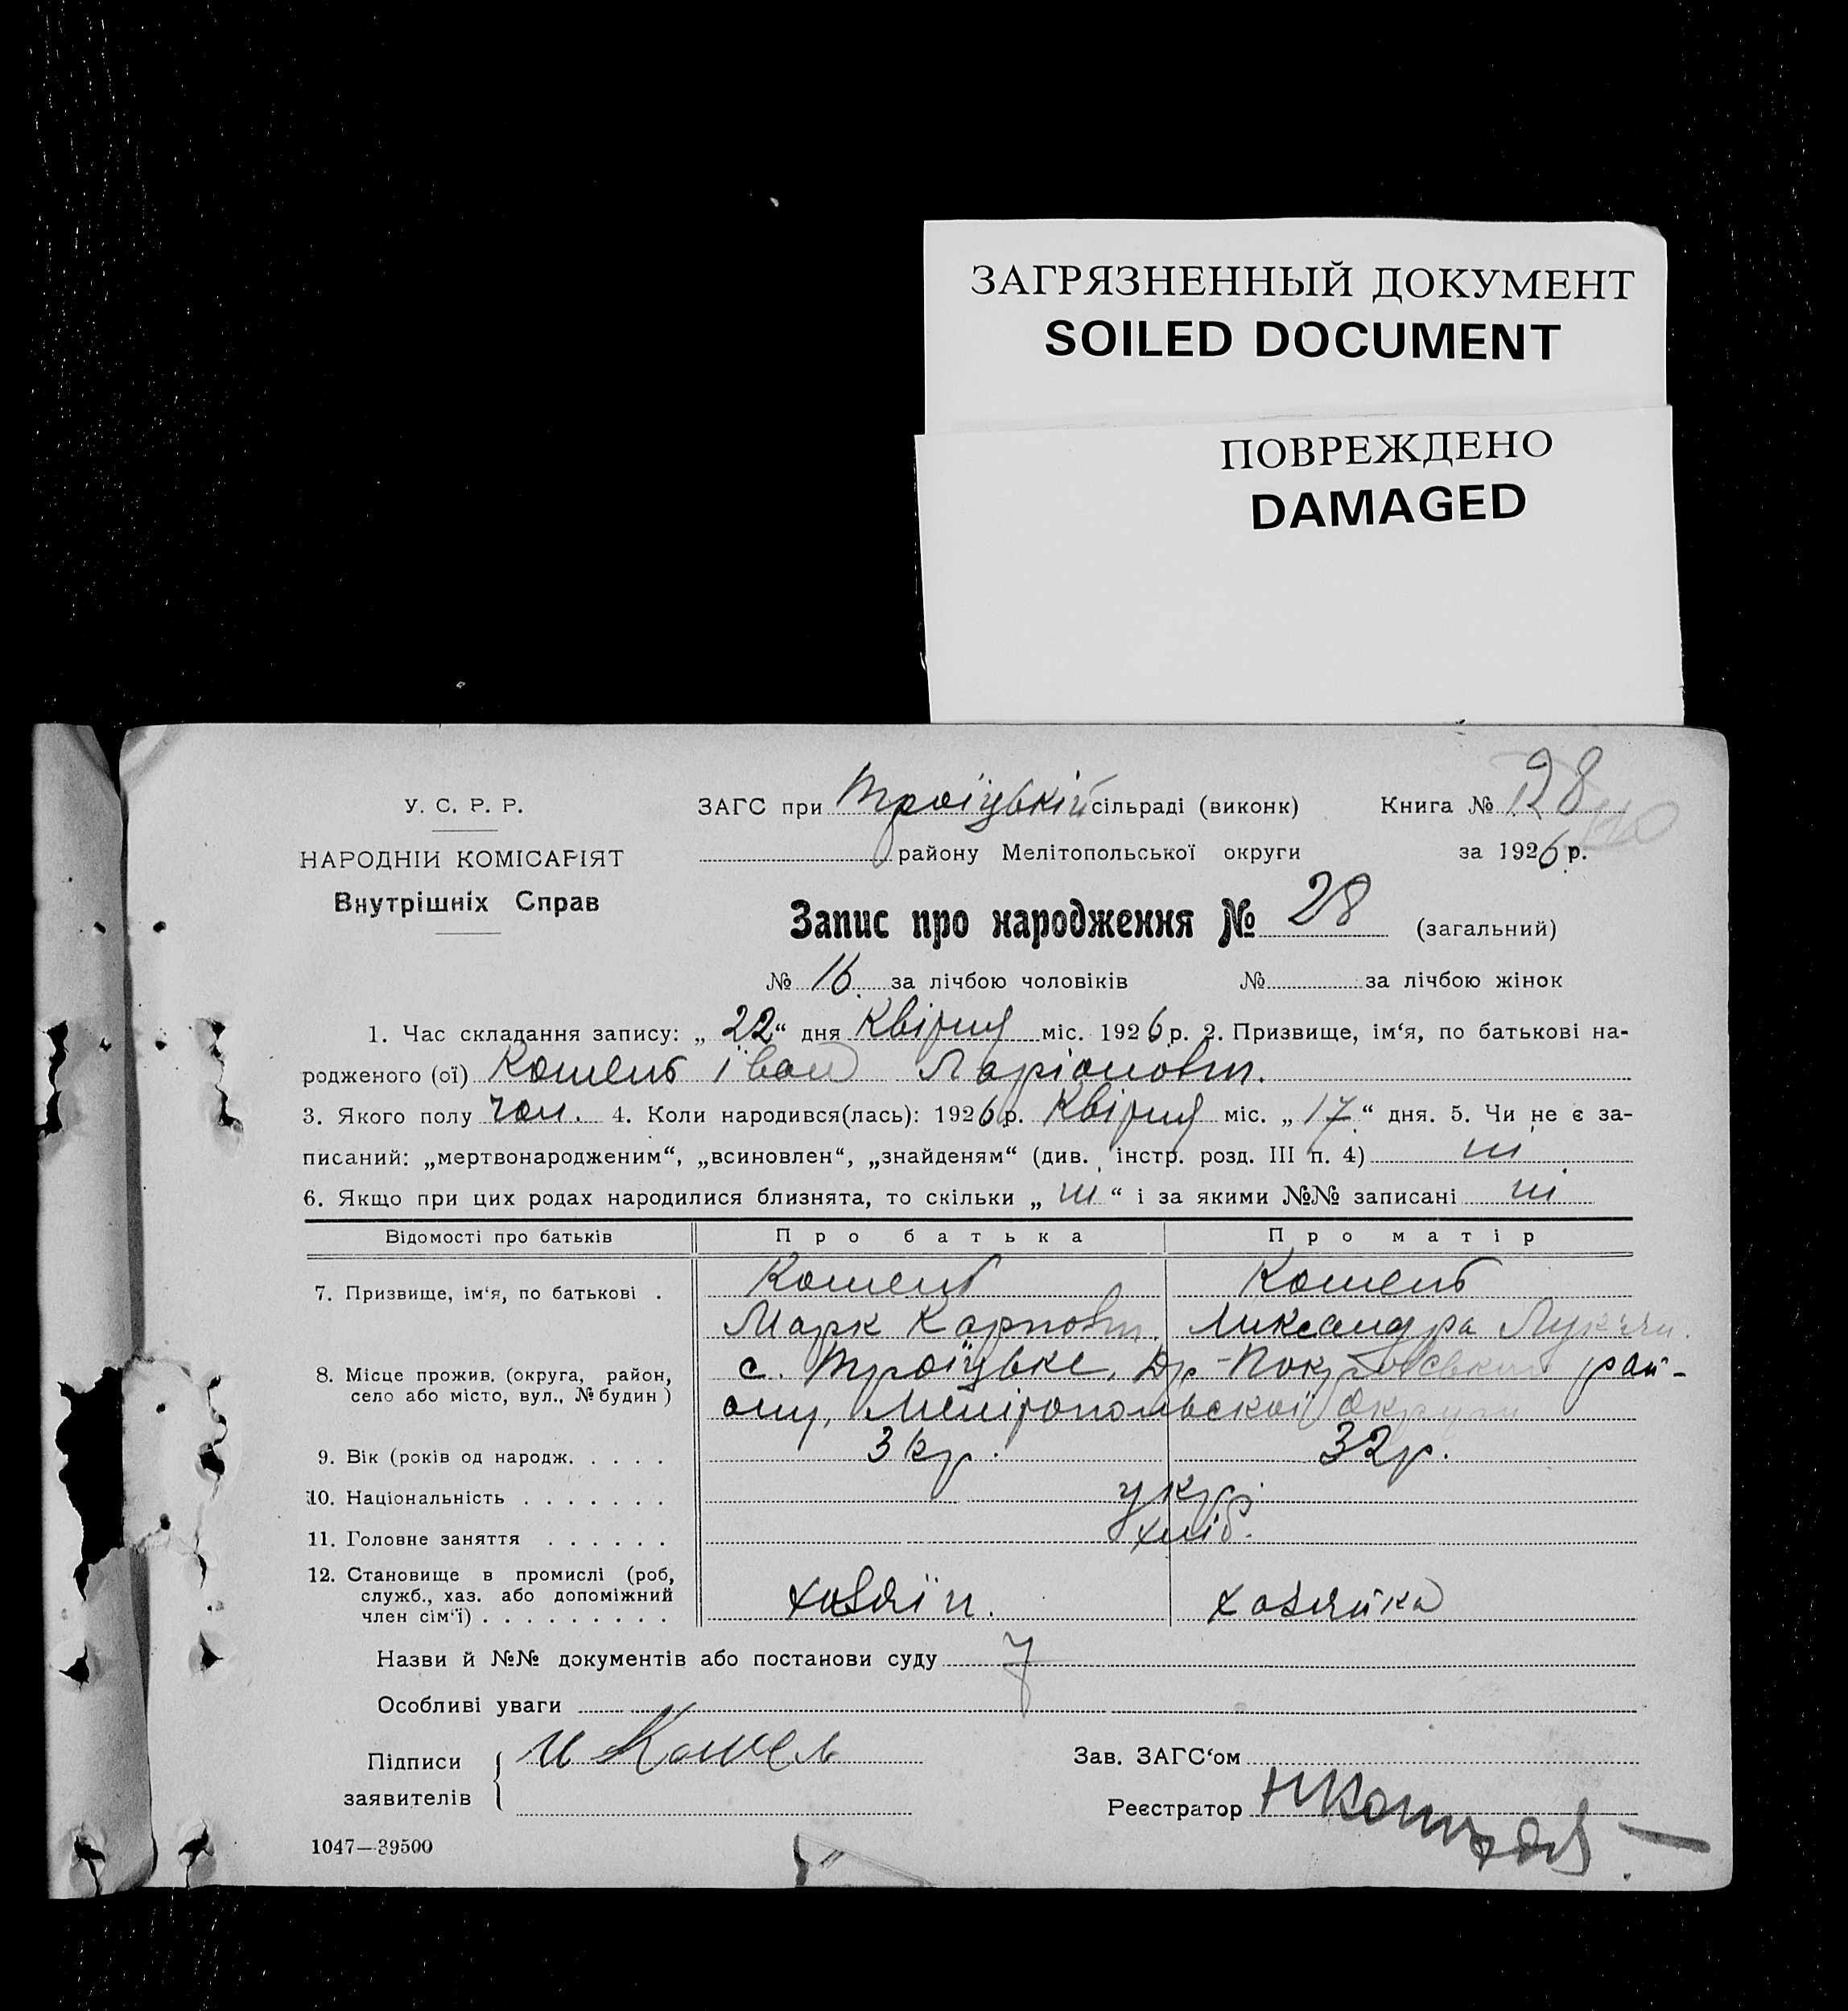 ЗАГРЯЗНЕННЫЙ ДОКУМЕНТ
SOILED DOCUMENT
ПОВРЕЖДЕНО
DAMAGED
У. С. Р. Р.
НАРОДНІЙ КОМІСАРІЯТ
Внутрішніх Справ
ЗАГС при Троіцькій сільраді (виконк) Книга № 28
району Мелітопольської округи за 1926 р.
Запис про народження № 28 (загальний)
№ 16 за лічбою чоловіків № за лічбою жінок
1. Час складання запису: „22“ дня Квітня міс. 1926 р. 2. Призвище, ім‘я, по батькові на-
родженого (ої) Кошель Іван
3. Якого полу чол. 4. Коли народився(лась): 1926 р. Квітня міс. „17“ дня. 5. Чи не є за-
писаний: „мертвонародженим“, „всиновлен“, „знайденям“ (див. інстр. розд. III п. 4) ні
6. Якщо при цих родах народилися близнята, то скільки „ні“ і за якими №№ записані ні
Відомості про батьків Про батька Про матір
7. Призвище, ім‘я, по батькові . Кошель Кошель
Марк Карпович
8. Місце прожив. (округа, район, село або місто, вул., № будин) с. Троїцьке, Др-Покровського рай-
ону, Мелітопольскої округи
9. Вік (років од народж. . . . . 32р.
10. Національність . . . . . . . укр.
11. Головне заняття . . . . . . хліб.
12. Становище в промислі (роб, служб., хаз. або допоміжний член сім‘ї) . . . . . . . . . хозяїн. хозяйка
Назви й №№ документів або постанови суду
Особливі уваги
Підписи заявителів И Кошель
Зав. ЗАГС‘ом
Реєстратор
1047—39500